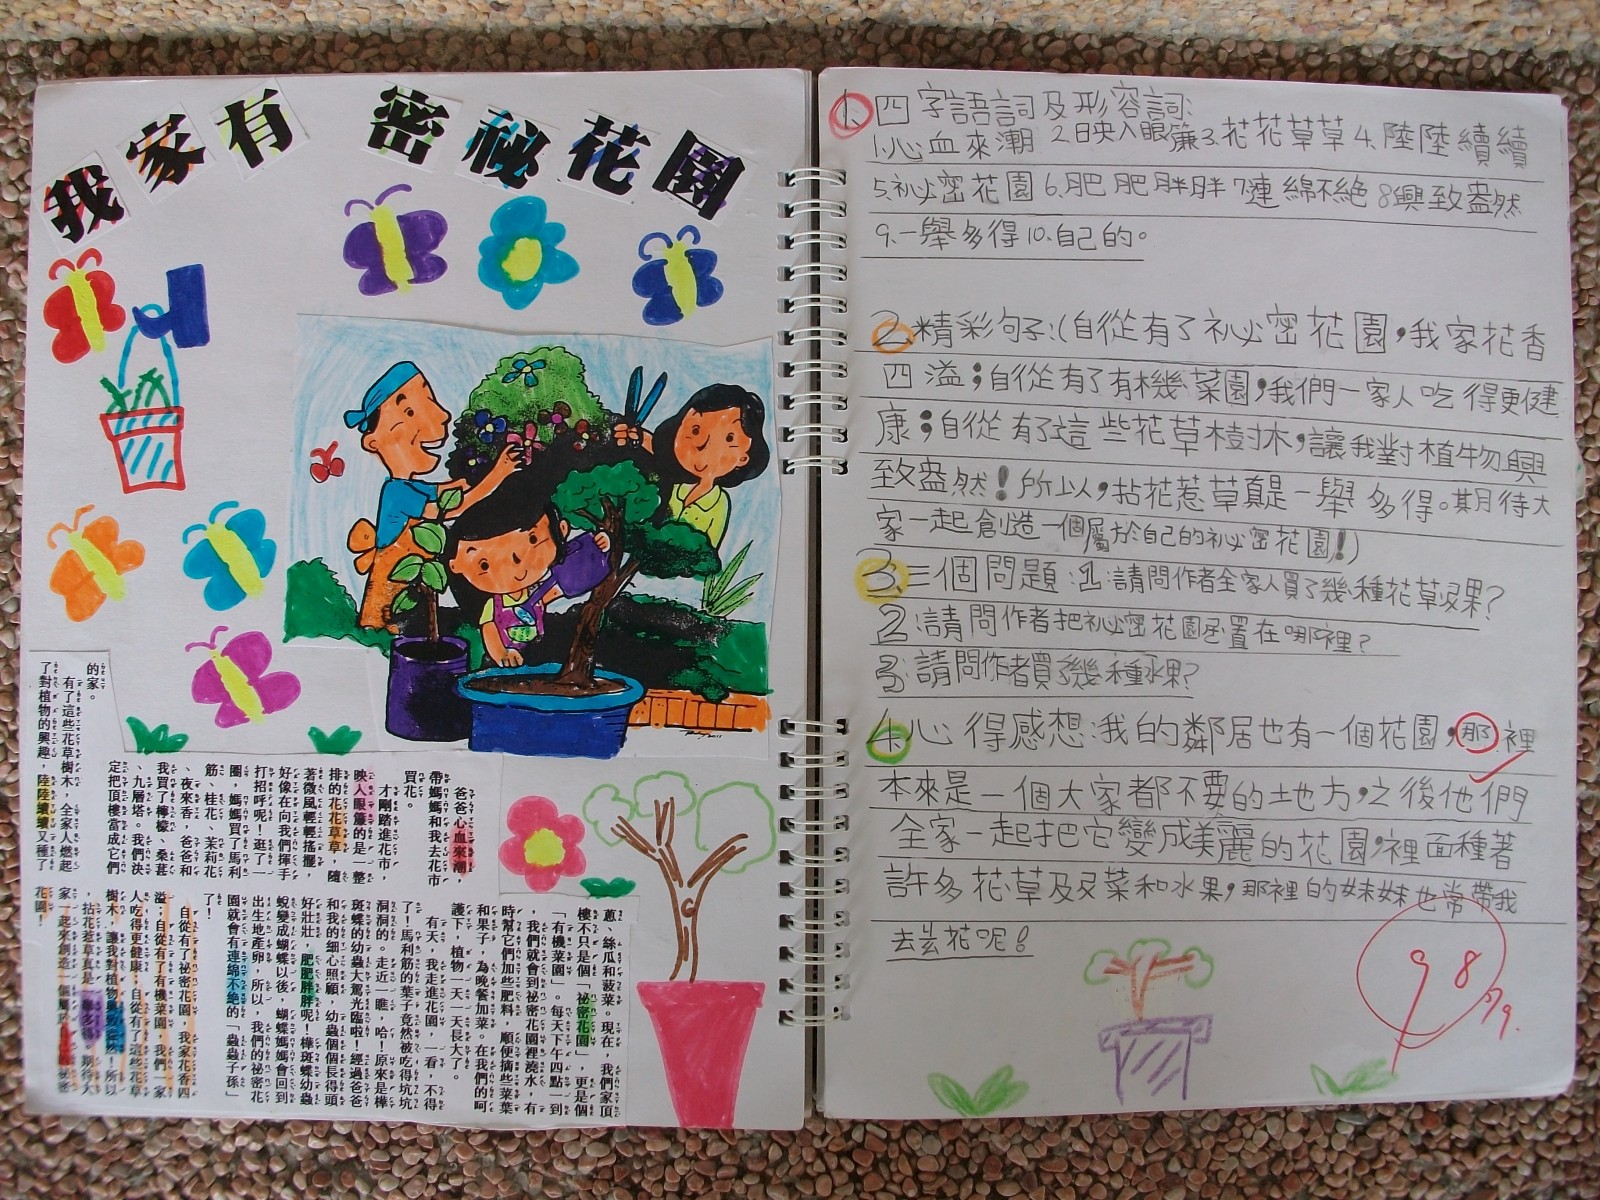 我家有 密祕花園
爸爸心血來潮，
帶媽媽和我去花市
買花。
才剛踏進花市，
映入眼簾的是一整
排的花花草草，隨
著微風輕輕搖擺，
好像在向我們揮手
打招呼呢！逛了一
圈，媽媽買了馬利
筋、桂花、茉莉花
、夜來香，爸爸和
我買了檸檬、桑葚
、九層塔。我們決
定把頂樓當成它們
的家。
有了這些花草樹木，全家人燃起
了對植物的興趣，陸陸續續又種了
蔥、絲瓜和菠菜。現在，我們家頂
樓不只是個「祕密花園」，更是個
「有機菜園」。每天下午四點一到
，我們就會到祕密花園裡澆水，有
時幫它們加些肥料，順便摘些菜葉
和果子，為晚餐加菜。在我們的呵
護下，植物一天一天長大了。
有天，我走進花園一看，不得
了！馬利筋的葉子竟然被吃得坑坑
洞洞的。走近一瞧，哈！原來是樺
斑蝶的幼蟲大駕光臨啦！經過爸爸
和我的細心照顧，幼蟲個個長得頭
好壯壯，肥肥胖胖呢！樺斑蝶幼蟲
蛻變成蝴蝶以後，蝴蝶媽媽會回到
出生地產卵，所以，我們的祕密花
園就會有連綿不絕的「蟲蟲子孫」
了！
自從有了祕密花園，我家花香四
溢；自從有了有機菜園，我們一家
人吃得更健康；自從有了這些花草
樹木，讓我對植物興致盎然！所以
，拈花惹草真是一舉多得。期待大
家一起來創造一個屬於自己的祕密
花園！
1.四字語詞及形容詞：
1.心血來潮 2.映入眼簾 3.花花草草 4.陸陸續續
5.祕密花園 6.肥肥胖胖 7.連綿不絕 8.興致盎然
9.一舉多得 10.自己的。
2.精彩句子：(自從有了祕密花園，我家花香
四溢；自從有了有機菜園，我們一家人吃得更健
康；自從有了這些花草樹木，讓我對植物興
致盎然！所以，拈花惹草真是一舉多得。其月待大
家一起創造一個屬於自己的祕密花園！)
3.三個問題：1：請問作者全家人買了幾種花草及果？
2：請問作者把祕密花園丕置在哪裡？
3：請問作者買了幾種水果？
4.心得感想：我的鄰居也有一個花園，那裡
本來是一個大家都不要的土地方，之後他們
全家一起把它變成美麗的花園，裡面種著
許多花草及菜和水果，那裡的妹妹也常帶我
去花呢！
98
5/9.